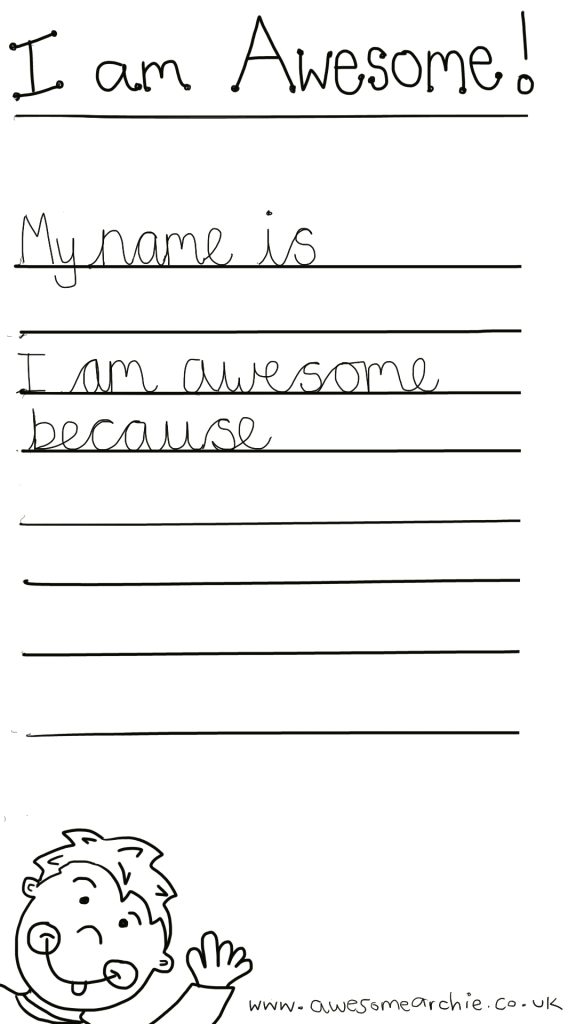 I am Awesome!
My name is
I am awesome
because
www.awesomearchie.co.uk